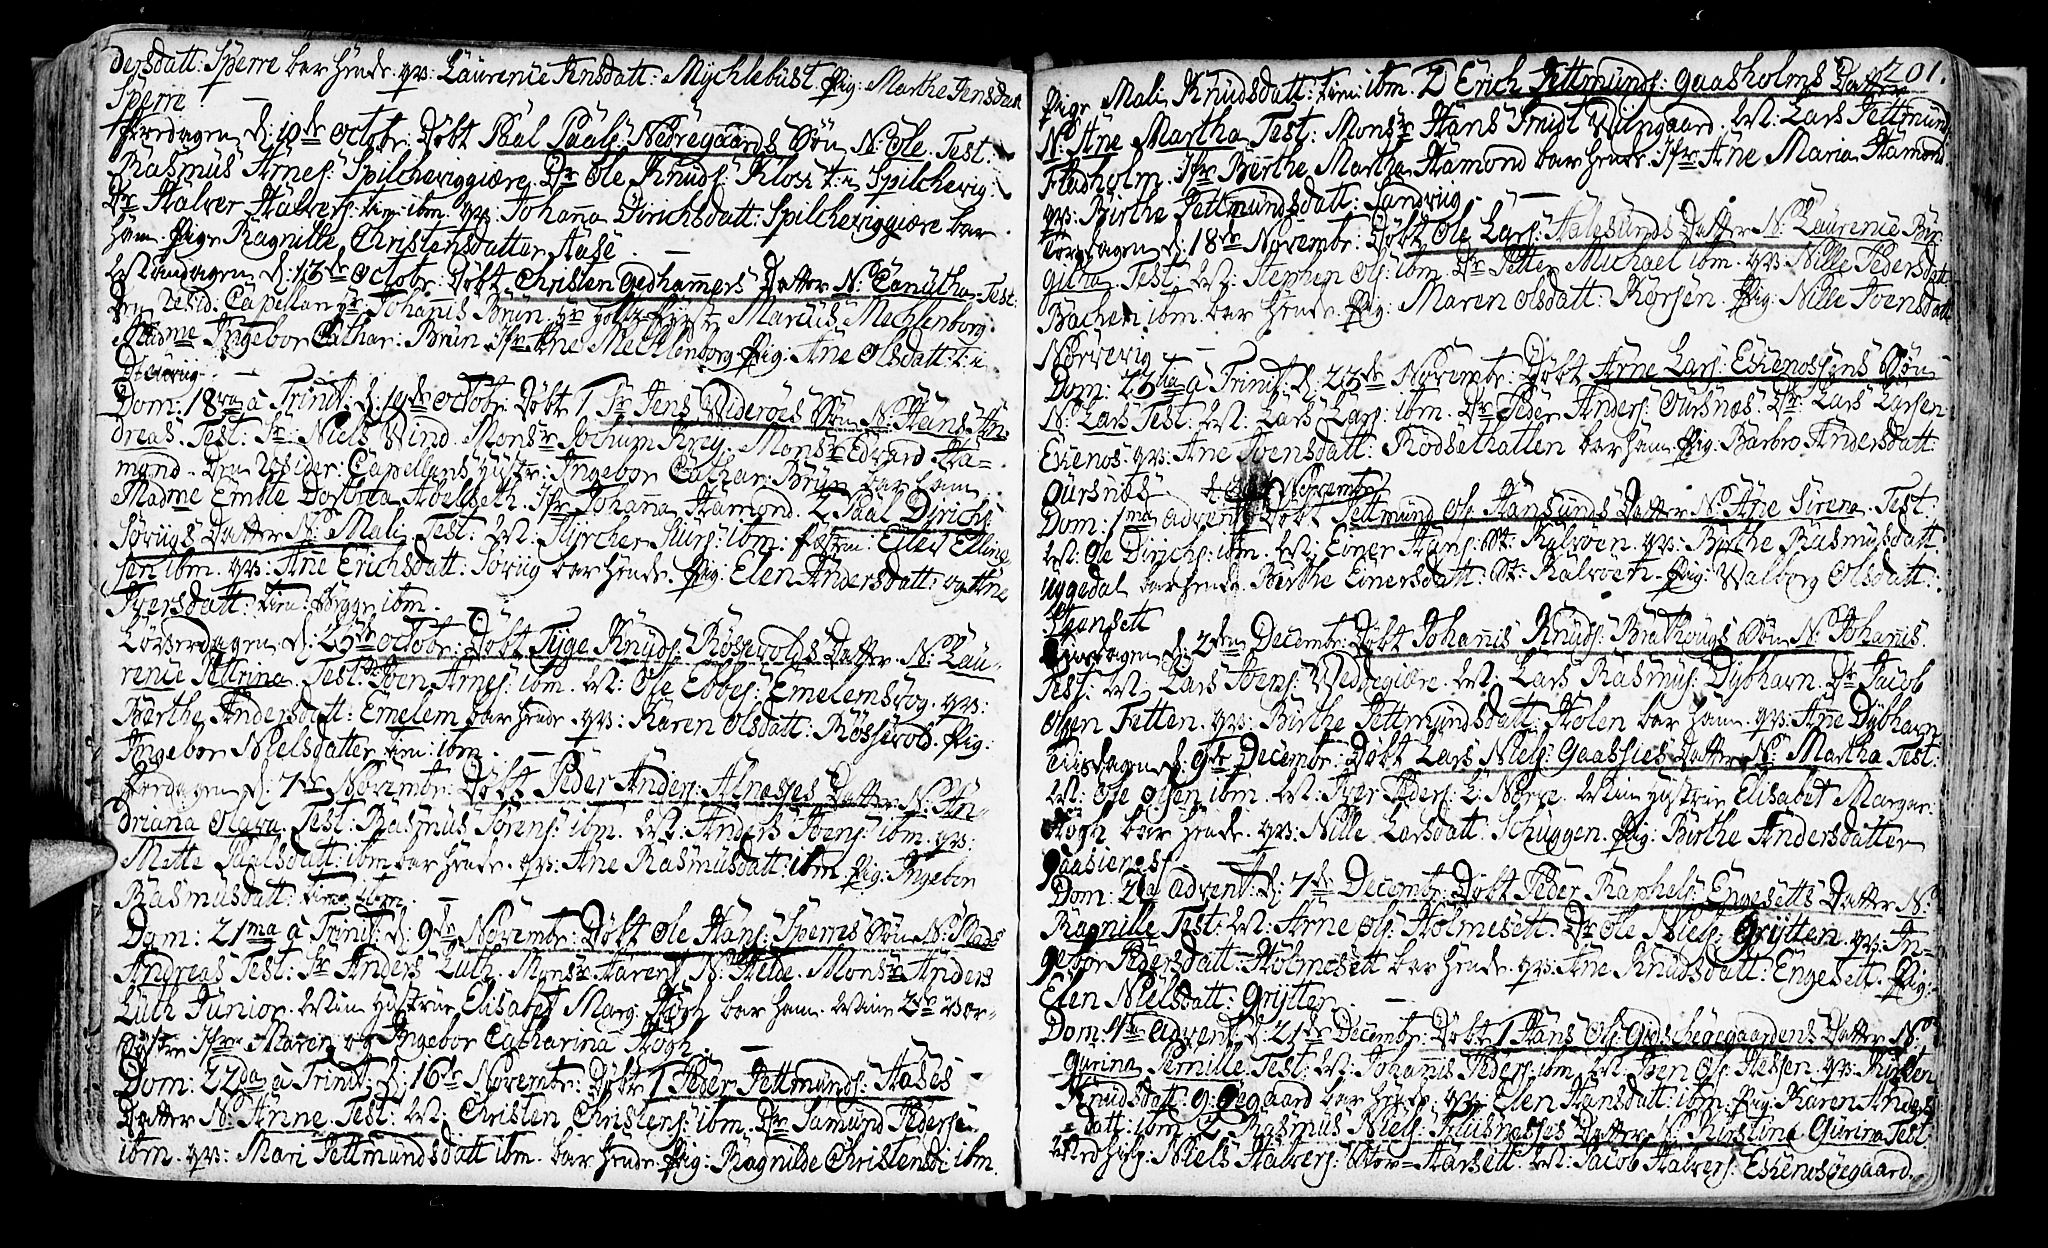 dersdatt: Sperre bar hende. qv: Laurence Jensdatt: Mychlebust Pig: Marthe Jensdatt
Sperre
Fredagen d: 10de Octobr: Døbt Paal Paals: Nedregaards Søn N: Ole. Test:
Rasmus Arnes: Spilcheviggiære Dr: Ole Knuds: Klosz t: i Spilchevig:
Dr: Halver Halvers: tien: ibm. qv: Johanna Dirichsdatt: Spilcheviggiære bar
ham. Pige Ragnille Christensdatter Aase
Mandagen d: 13de Octobr: Døbt Christen Gedhammers Datter N: Canutha Test:
Resid: Capellan Hr Johannis Brun, Marcus Mechlenborg
Madme Ingebor Cathar: Brun Jfr Ane Mechlenborg Pig: Ane Olsdatt: t: i
Steinviig
Dom: 18va a Trinit: d: 19de Octobr: Døbt 1 Sr Jens Widerøes Søn N: Hans An-
dreas. Test: Sr: Niels Wind. Monsr Jochum Krey, Monsr Edvard Ha-
mond. Resider: Capellans Hystr: Ingebor Cathar: Brun bar ham
Madme Emble Dorthea Abelseth. Jfr Johanna Hamond. 2 Paal Dirichs:
Søviigs Datter N: Mali Test: M: Styrcher Siurs: ibm. Eiler Elling-
sen ibm. qv: Ane Erichsdatt: Søviig bar hende. Pig: Elen Andersdatt: og Ane
Iversdatt: tien: begge ibm.
Løverdagen d: 25de Octobr: Døbt Tyge Knuds: Røssevolds Datter N: Lau-
rence Pettrina. Test: Joen Arnes: ibm. M: Ole Ebbes: Emelemsvog. qv:
Berthe Andersdatt: Emelem bar hende. qv: Karen Olsdatt: Røssevol. Pig:
Ingebor Nielsdatter tien: ibm.
Fredagen d: 7de Novembr: Døbt Peder Anders: Alnæsses Datter N: An-
driana Olava. Test: Rasmus Sørens: ibm. M: Anders Joens: ibm. qv:
Mette Paalsdatt: ibm bar hende. qv: Ane Rasmusdatt: ibm Pig: Ingebor
Rasmusdatt: tien: ibm.
Dom: 21ma a Trinit: d: 9de Novembr: Døbt Ole Hans: Sperres Søn N: Mads
Andreas Test: Sr Anders Luth. Monsr Marens N: Helde. Monsr Anders
Luth Junior. Min Hystrue Elisabet Marg: Høgh bar ham. Mine 2de
Døttre Jfr Maren og Ingebor Catharina Høgh.
Dom: 22da a Trinit: d: 16de Novembr: Døbt 1 Peder Pettmunds: Aases
Datter N: Anne. Test: M: Christen Christens: ibm. Dr: Samund Peders:
ibm. qv: Mari Pettmundsdatt ibm. bar hende. Pig: Ragnilde Christensd: ibm.
201.
Pige Mali Knudsdatt: tien: ibm. 2 Erich Pettmunds: Gaasholms Datter
N: Ane Martha. Test: Monsr Hans Smidt Wiisgaard. M: Lars Pettmunds:
Fladholm. Jfr Berthe Martha Hamond bar hende. Jfr Ane Maria Hamond.
qv: Birthe Pettmundsdatt: Sandviig.
Torsdagen d: 18de Novembr: Døbt Ole Lars: Aalesunds Datter N: Laurence Bir-
githa Test: M: Stephen Ols: ibm. Dr Petter Michael ibm. qv: Nille Pedersdatt:
Bachen ibm. bar hende. Pig: Maren Olsdatt: Korsen. Pig: Nille Joensdatt:
Nørvevig
Dom: 23tia a Trinit: d: 23de Novembr: Døbt Arne Lars: Eskenossens Søn
N: Lars Test: M: Lars Lars: ibm. Dr: Peder Anders: Oursnæs. Dr: Lars Larsen
Eskenos. qv: Ane Svensdatt: Rødsethatlen bar ham. Pig: Barbro Andersdatt:
Oursnæs Novembr
Dom: 1ma Advent: Døbt Pettmund Ols: Hansunds Datter N: Ane Sirena. Test:
M: Ole Dirichs: ibm. M: Einer Hans: St: Kalvøen. qv: Birthe Rasmusdatt:
Uggedal bar hende Berthe Einersdatt: St: Kalvøen. Pig: Walborg Olsdatt:
Flemsett
d: 2den Decembr: Døbt Johannis Knuds: Brathougs Søn N: Johannis.
Test: M: Lars Joens: Wedregiære. M: Lars Rasmus: Dybhavn. Dr Jacob
Olsen Fetten. qv: Birthe Pettmundsdatt: Holen bar ham. qv: Ane Dybhavn
Tiisdagen d: 9de Decembr: Døbt Lars Niels: Gaassies Datter N: Martha Test:
M: Ole Olsen ibm. M: Iver Peders: L: Nørve. Min Hystrue Elisabet Margar:
Høgh bar hende. qv: Nille Larsdatt: Schuggen. Pig: Birthe Andersdatter
Gaasienes
Dom: 2da Advent: d: 7de Decembr: Døbt Peder Raphels: Engesetts Datter N:
Ragnille Test: M: Arne Ols: Holmesett. Dr Ole Niels: Grytten. qv: In-
gebor Pedersdatt: Holmesett bar hende. qv: Ane Knudsdatt: Engesett. Pig:
Elen Nielsdatt: Grytter
Dom: 4ta Advent: d: 21de Decembr: Døbt 1 Hans Ols: Giøschegaardens Datter N:
Gurina Pernille. Test: M: Johannis Peders: ibm. M: Joen Ols: Hessen. qv: Kirsten
Knudsdatt: Giøegaard bar hende. qv: Elen Hansdatt: ibm. Pig: Karen Anders
datt: ibm. 2 Rasmus Niels: Fluesnæsses Datter N: Kirstine Gurina Test:
Medhielp: Niels Halvers: Stor-Harsett. M: Jacob Halvers: Eskenosøegaard.